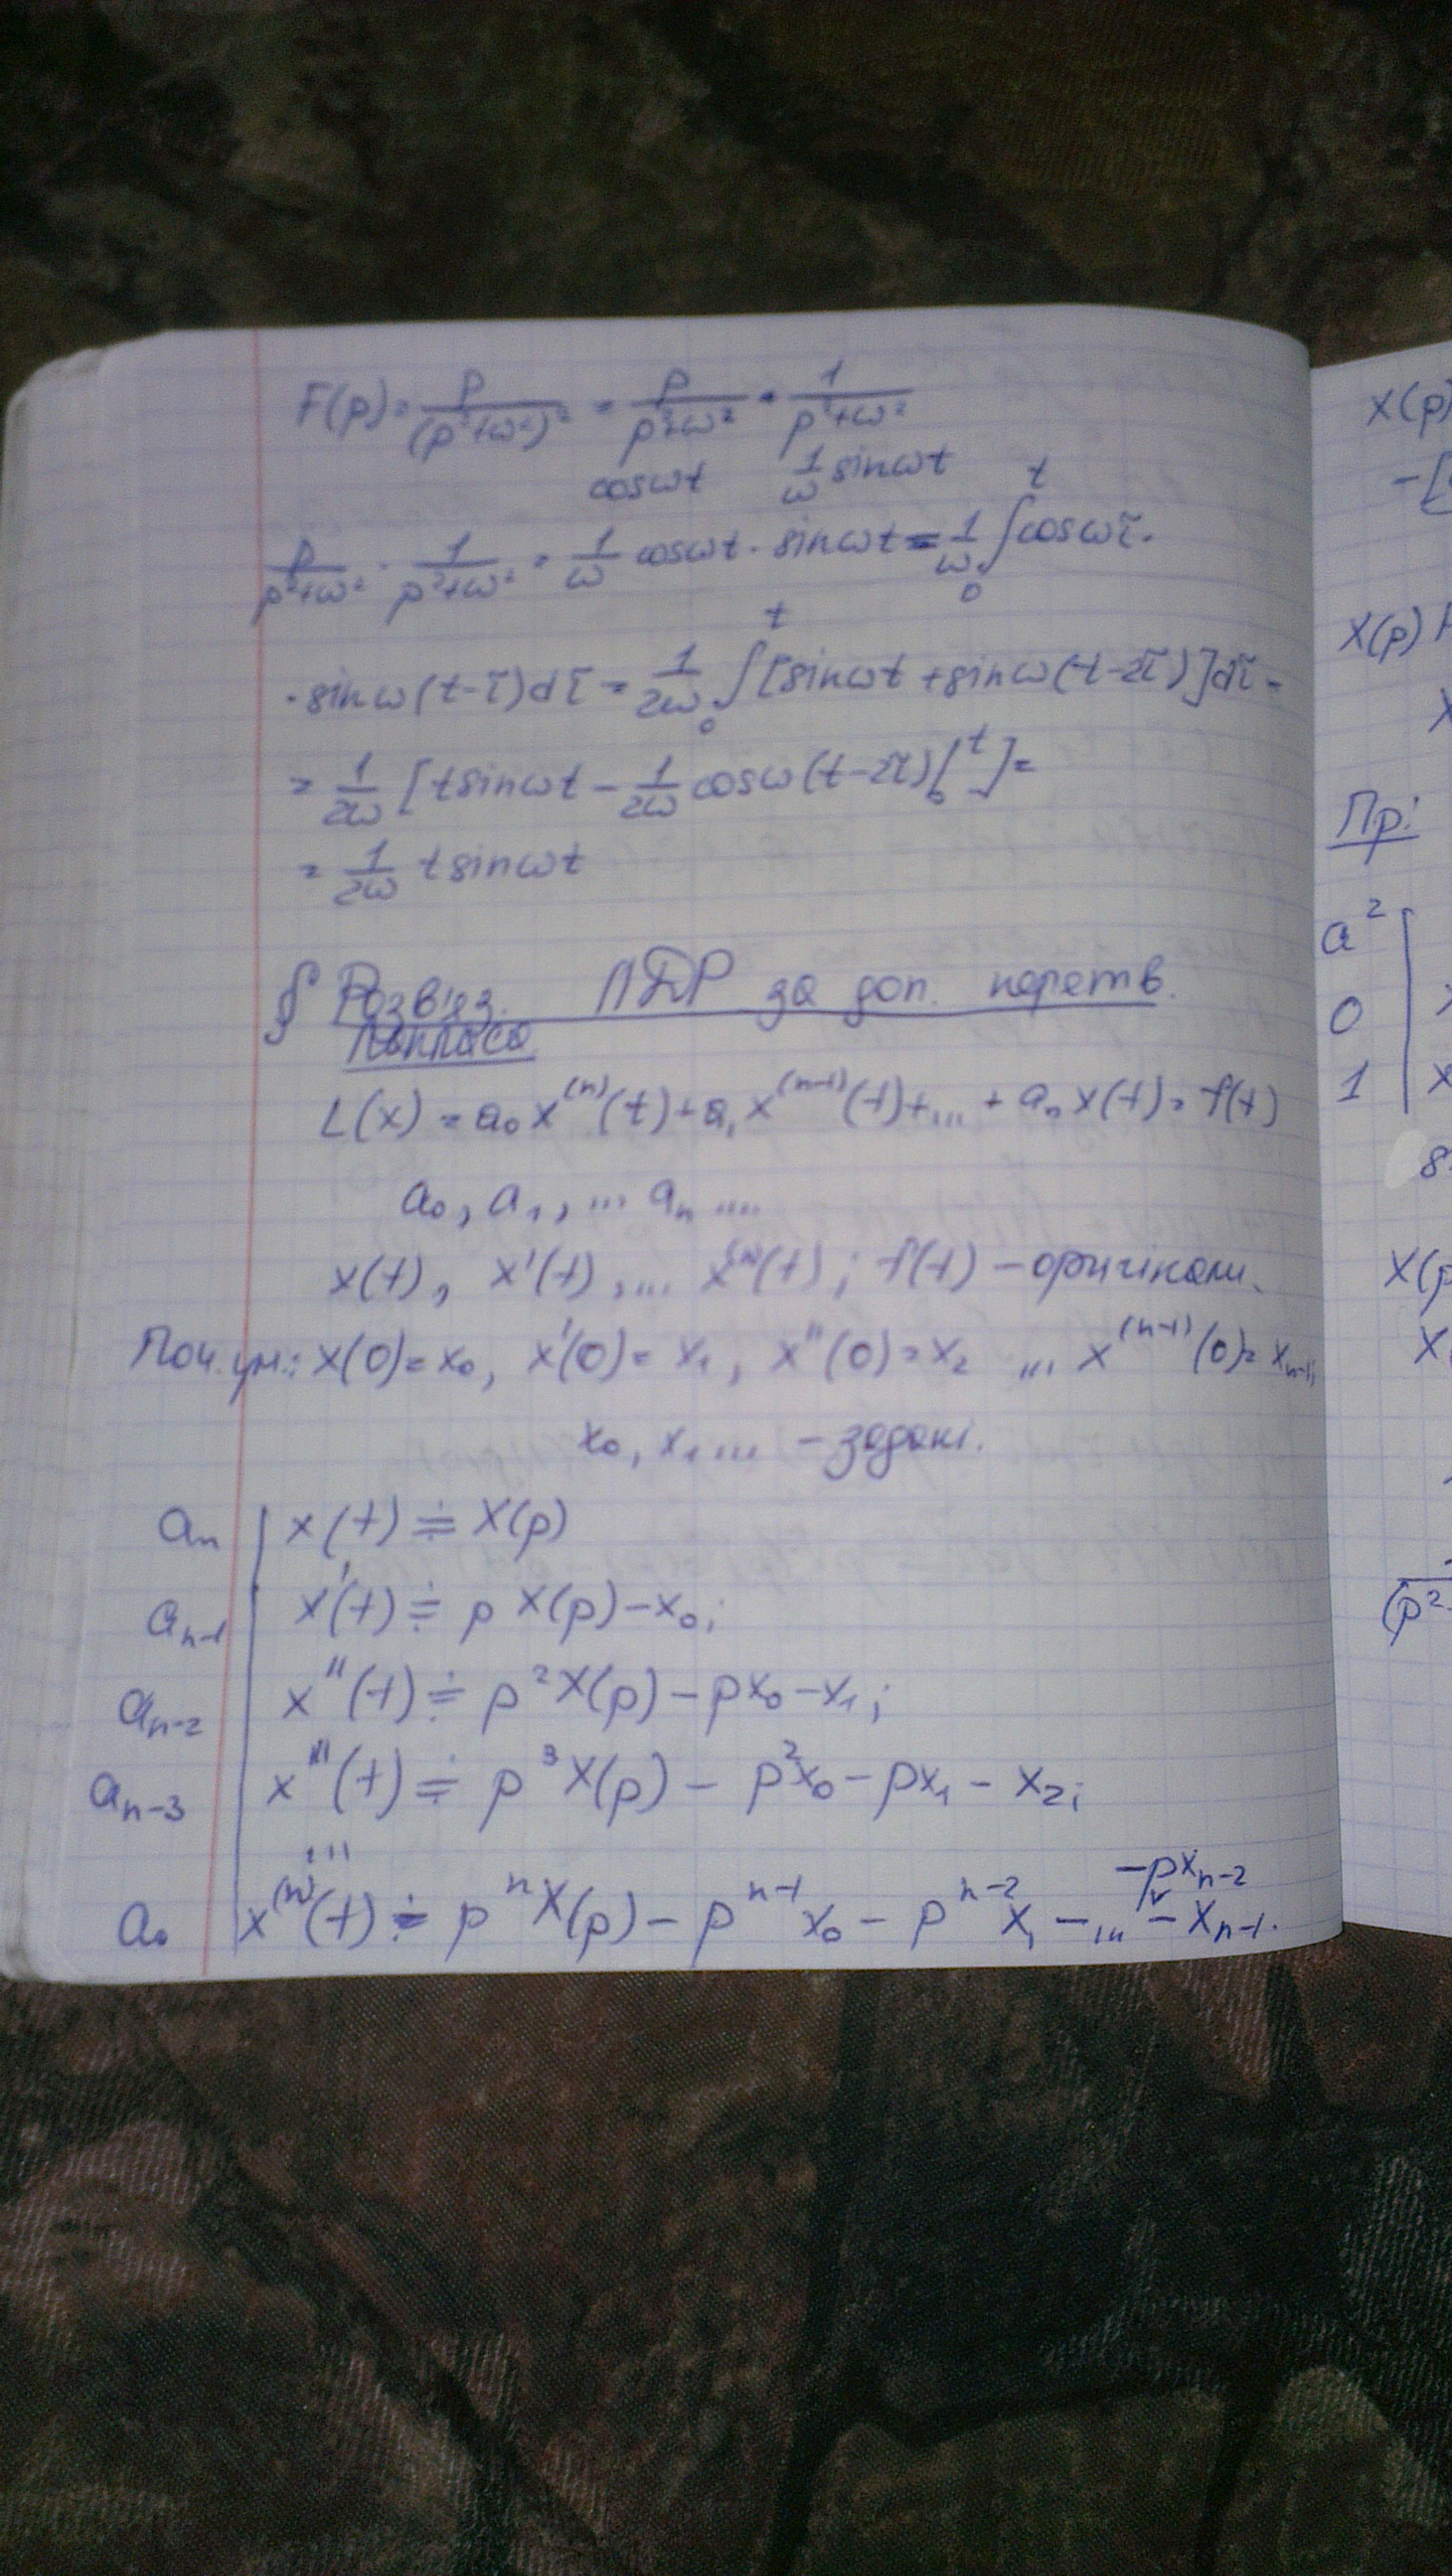 F(p) = p/(p²+ω²)² = p/(p²+ω²) · 1/(p²+ω²)
cosωt 1/ω sinωt
p/(p²+ω²) · 1/(p²+ω²) = 1/ω cosωt · sinωt = 1/ω ∫₀ᵗ cosωτ·
·sinω(t-τ)dτ = 1/2ω ∫₀ᵗ [sinωt + sinω(t-2τ)]dτ =
= 1/2ω [t sinωt - 1/2ω cosω(t-2τ)|₀ᵗ] =
= 1/2ω t sinωt
§ Розв'яз. ЛДР за доп. перетв.
Лапласа
L(x) = a₀x⁽ⁿ⁾(t) + a₁x⁽ⁿ⁻¹⁾(t) + ... + aₙx(t) = f(t)
a₀, a₁, ... aₙ ....
x(t), x'(t), ... x⁽ⁿ⁾(t); f(t) – оригінали.
Поч. ум.: x(0) = x₀, x'(0) = x₁, x''(0) = x₂ ... x⁽ⁿ⁻¹⁾(0) = xₙ₋₁,
x₀, x₁ ... – задані.
aₙ | x(t) ≑ X(p)
aₙ₋₁ | x'(t) ≑ pX(p) - x₀;
aₙ₋₂ | x''(t) ≑ p²X(p) - px₀ - x₁;
aₙ₋₃ | x'''(t) ≑ p³X(p) - p²x₀ - px₁ - x₂;
...
-pxₙ₋₂
a₀ | x⁽ⁿ⁾(t) ≑ pⁿX(p) - pⁿ⁻¹x₀ - pⁿ⁻²x₁ - ... - xₙ₋₁.
X(p)
-[
X(p)
Пр:
a²
0
1
X(p
(p²